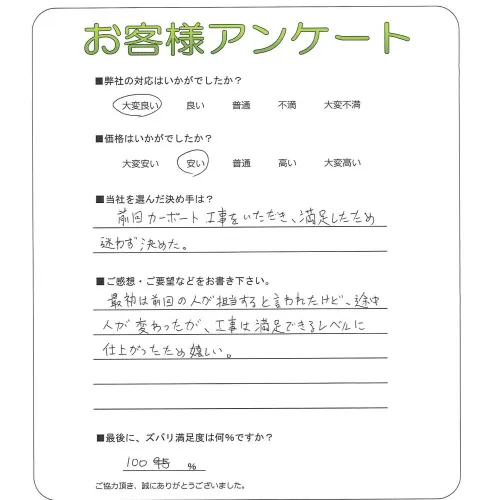 お客様アンケート
■弊社の対応はいかがでしたか？
大変良い 良い 普通 不満 大変不満
■価格はいかがでしたか？
大変安い 安い 普通 高い 大変高い
■当社を選んだ決め手は？
前回カーポート工事をいただき、満足したため
迷わず決めた。
■ご感想・ご要望などをお書き下さい。
最初は前回の人が担当すると言われたけど、途中
人が変わったが、工事は満足できるレベルに
仕上がったため嬉しい。
■最後に、ズバリ満足度は何%ですか？
100 %
ご協力頂き、誠にありがとうございました。